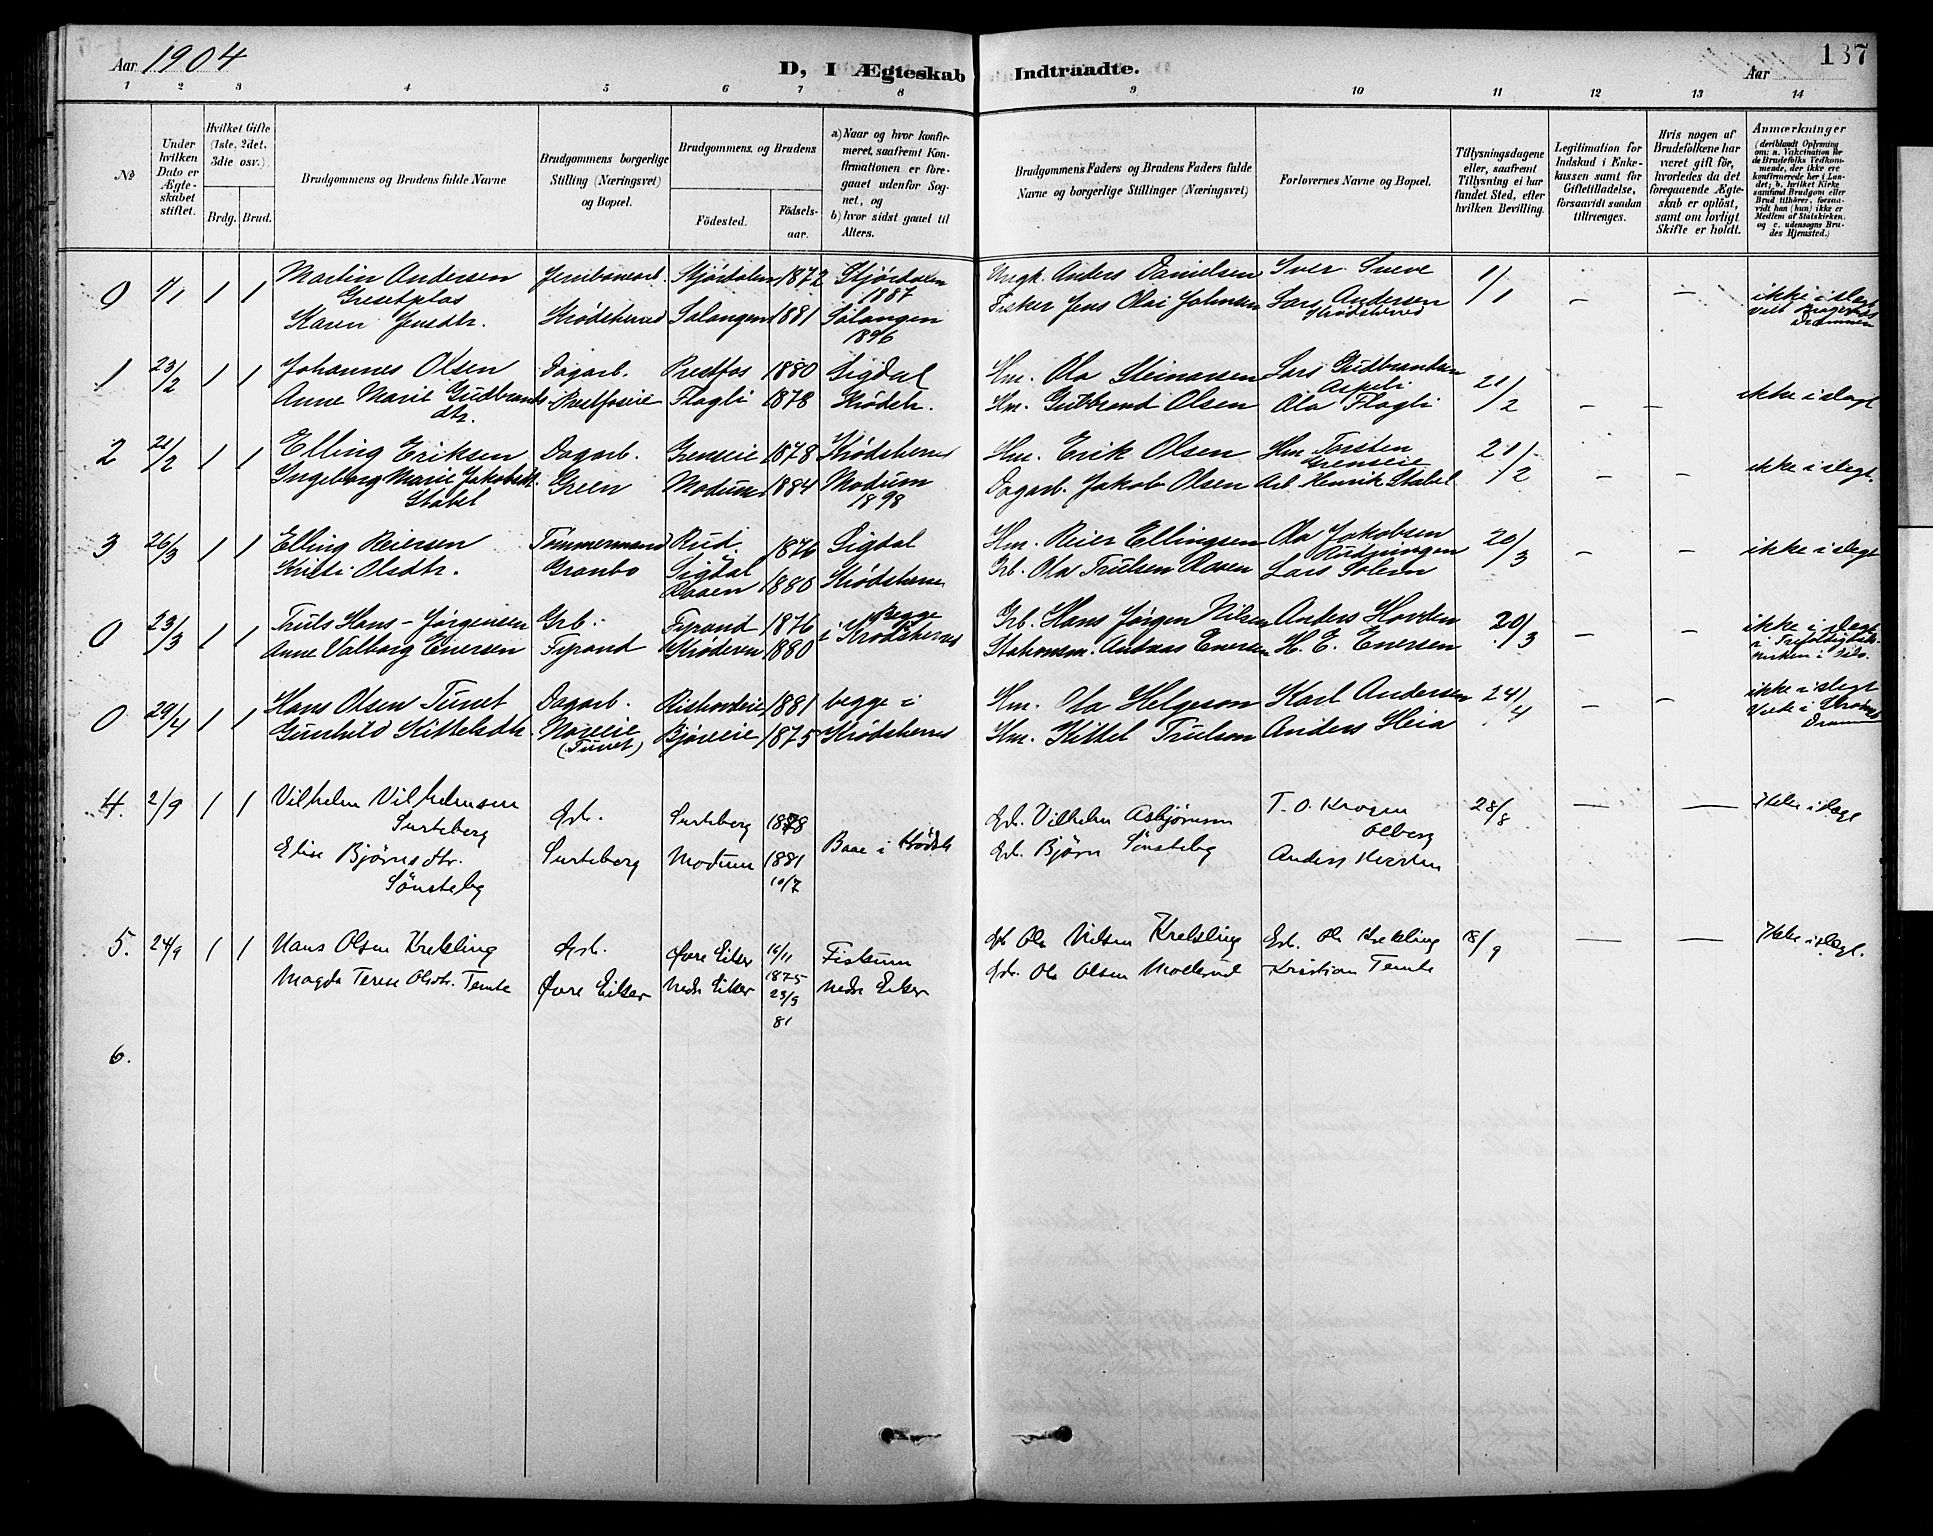 Aar 1904
D, I Ægteskab Indtraadte.
Aar 137
1 2 3 4 5 6 7 8 9 10 11 12 13 14
№
Under hvilken Dato er Ægteskabet stiftet.
Hvilket Gifte (1ste, 2det, 3die osv.)
Brdg. Brud.
Brudgommens og Brudens fulde Navne
Brudgommens borgerlige Stilling (Næringsvei) og Bopæl.
Brudgommens og Brudens
Födested.
Födselsaar.
a) Naar og hvor konfirmeret, saafremt Konfirmationen er foregaaet udenfor Sognet, og
b) hvor sidst gaaet til Alters.
Brudgommens Faders og Brudens Faders fulde Navne og borgerlige Stillinger (Næringsvei)
Forlovernes Navne og Bopæl.
Tillysningsdagene eller, saafremt Tillysning ei har fundet Sted, efter hvilken Bevilling.
Legitimation for Indskud i Enkekassen samt for Giftetilladelse, forsaavidt saadan tiltrænges.
Hvis nogen af Brudefolkene har været gift för, hvorledes da det foregaaende Ægteskab er oplöst, samt om lovligt Skifte er holdt.
Anmærkninger
(deriblandt Oplysning om: a. Vakcination for de Brudefolks Vedkommende, der ikke ere konfirmerede her i Landet; b. hvilket Kirkesamfund Brudgom eller Brud tilhörer, forsaavidt han (hun) ikke er Medlem af Statskirken, og c. udensogns Brudes Hjemsted.)
0 1/1 1 1 Martin Andersen Jernbanearb. Stjørdalen 1872 Stjørdalen Anders Danielsen Sver Sveve 1/1 – – ikke i slegt
Gresetplas 1887
Karen Jensdtr. Krødsherred Salangen 1881 Salangen Fisker Jens Olai Johnsen Lars Andersen Viet Bragernes
1896 Krødsherred Drammen
1 23/2 1 1 Johannes Olsen Dagarb. Prestfos 1880 Sigdal Hm. Ola Steinarsen Lars Gudbrandsen 21/2 – – ikke i slegt
Anne Marie Gudbrandsdtr. Prestfoseie Flagli 1878 Krødsh. Hm. Gudbrand Olsen Ola Flagli
2 21/2 1 1 Elling Eriksen Dagarb. Grenseie 1878 Krødsherred Hm. Erik Olsen Hm Torsten Grenseie 21/2 – – ikke i slegt.
Ingeborg Marie Jakobsdt. Green Modum 1884 Modum Dagarb. Jakob Olsen Arb. Henrik Stabel
Stabel 1898
3 26/3 1 1 Elling Reiersen Tømmermand Rud 1876 Sigdal Hm. Reier Ellingsen Ola Jakobsen 20/3 – – ikke i slegt
Sigdal Rudningen
Kristi Olsdtr. Granbo Raaen 1880 Krødsherred Grb. Ola Trulsen Raaen Lars Solem
0 23/3 1 1 Truls Hans-Jørgensen Grb. Fyrand 1876 Begge Grb. Hans Jørgen Nilsen Anders Hovden 20/3 – – ikke i slegt
Anne Valborg Enersen Fyrand Krøderen 1880 i Krødsherred Stationsm. Andreas Enersen H. E. Enersen
0 29/4 1 1 Hans Olsen Tunet Dagarb. Ristvedeie 1881 begge i Hm. Ola Helgeson Karl Andersen 24/4 – – ikke i slegt
Gunhild Kittelsdtr. Noreeie Bjøreeie 1875 Krødsherred Hm. Kittel Trulson Anders Skia
(Tunet)
4. 2/9 1 1 Vilhelm Vilhelmsen Arb. Surteberg 1878 Vilhelm Asbjørnsen T. O. Krogen 28/8 — — Ikke i slegt
Surteberg Olberg
Elise Bjørnsdtr. Surteberg Modum 1881 Baae i Krødsh Bjørn Sønsteby Anders
Sønsteby 10/7
5. 24/9 1 1 Hans Olsen Krekling Arb. Øvre Eiker 16/11 Fiskum Ola Nilsen Krekling Ola Krekling 18/9 — — Ikke i slegt.
1875
Magda Terese Olsdtr. Temte Øvre Eiker Nedr Eiker 23/3 Nedr Eiker Ola Olsen Møllerud Kristian Temte
81
6.